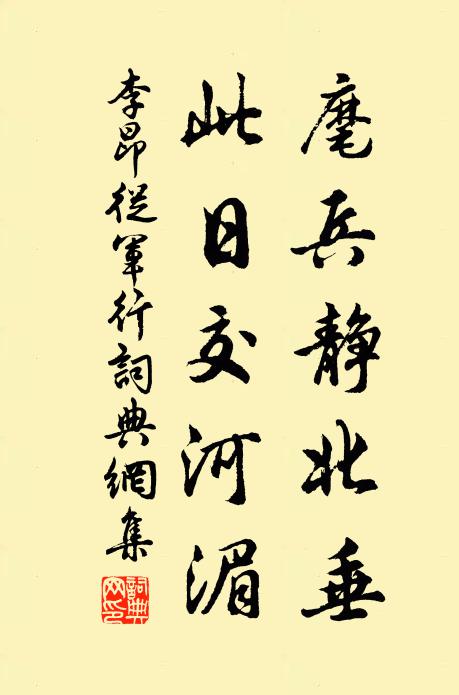 麾兵静北垂
此日交河湄
李昂從軍行詞典網集
詞典網印